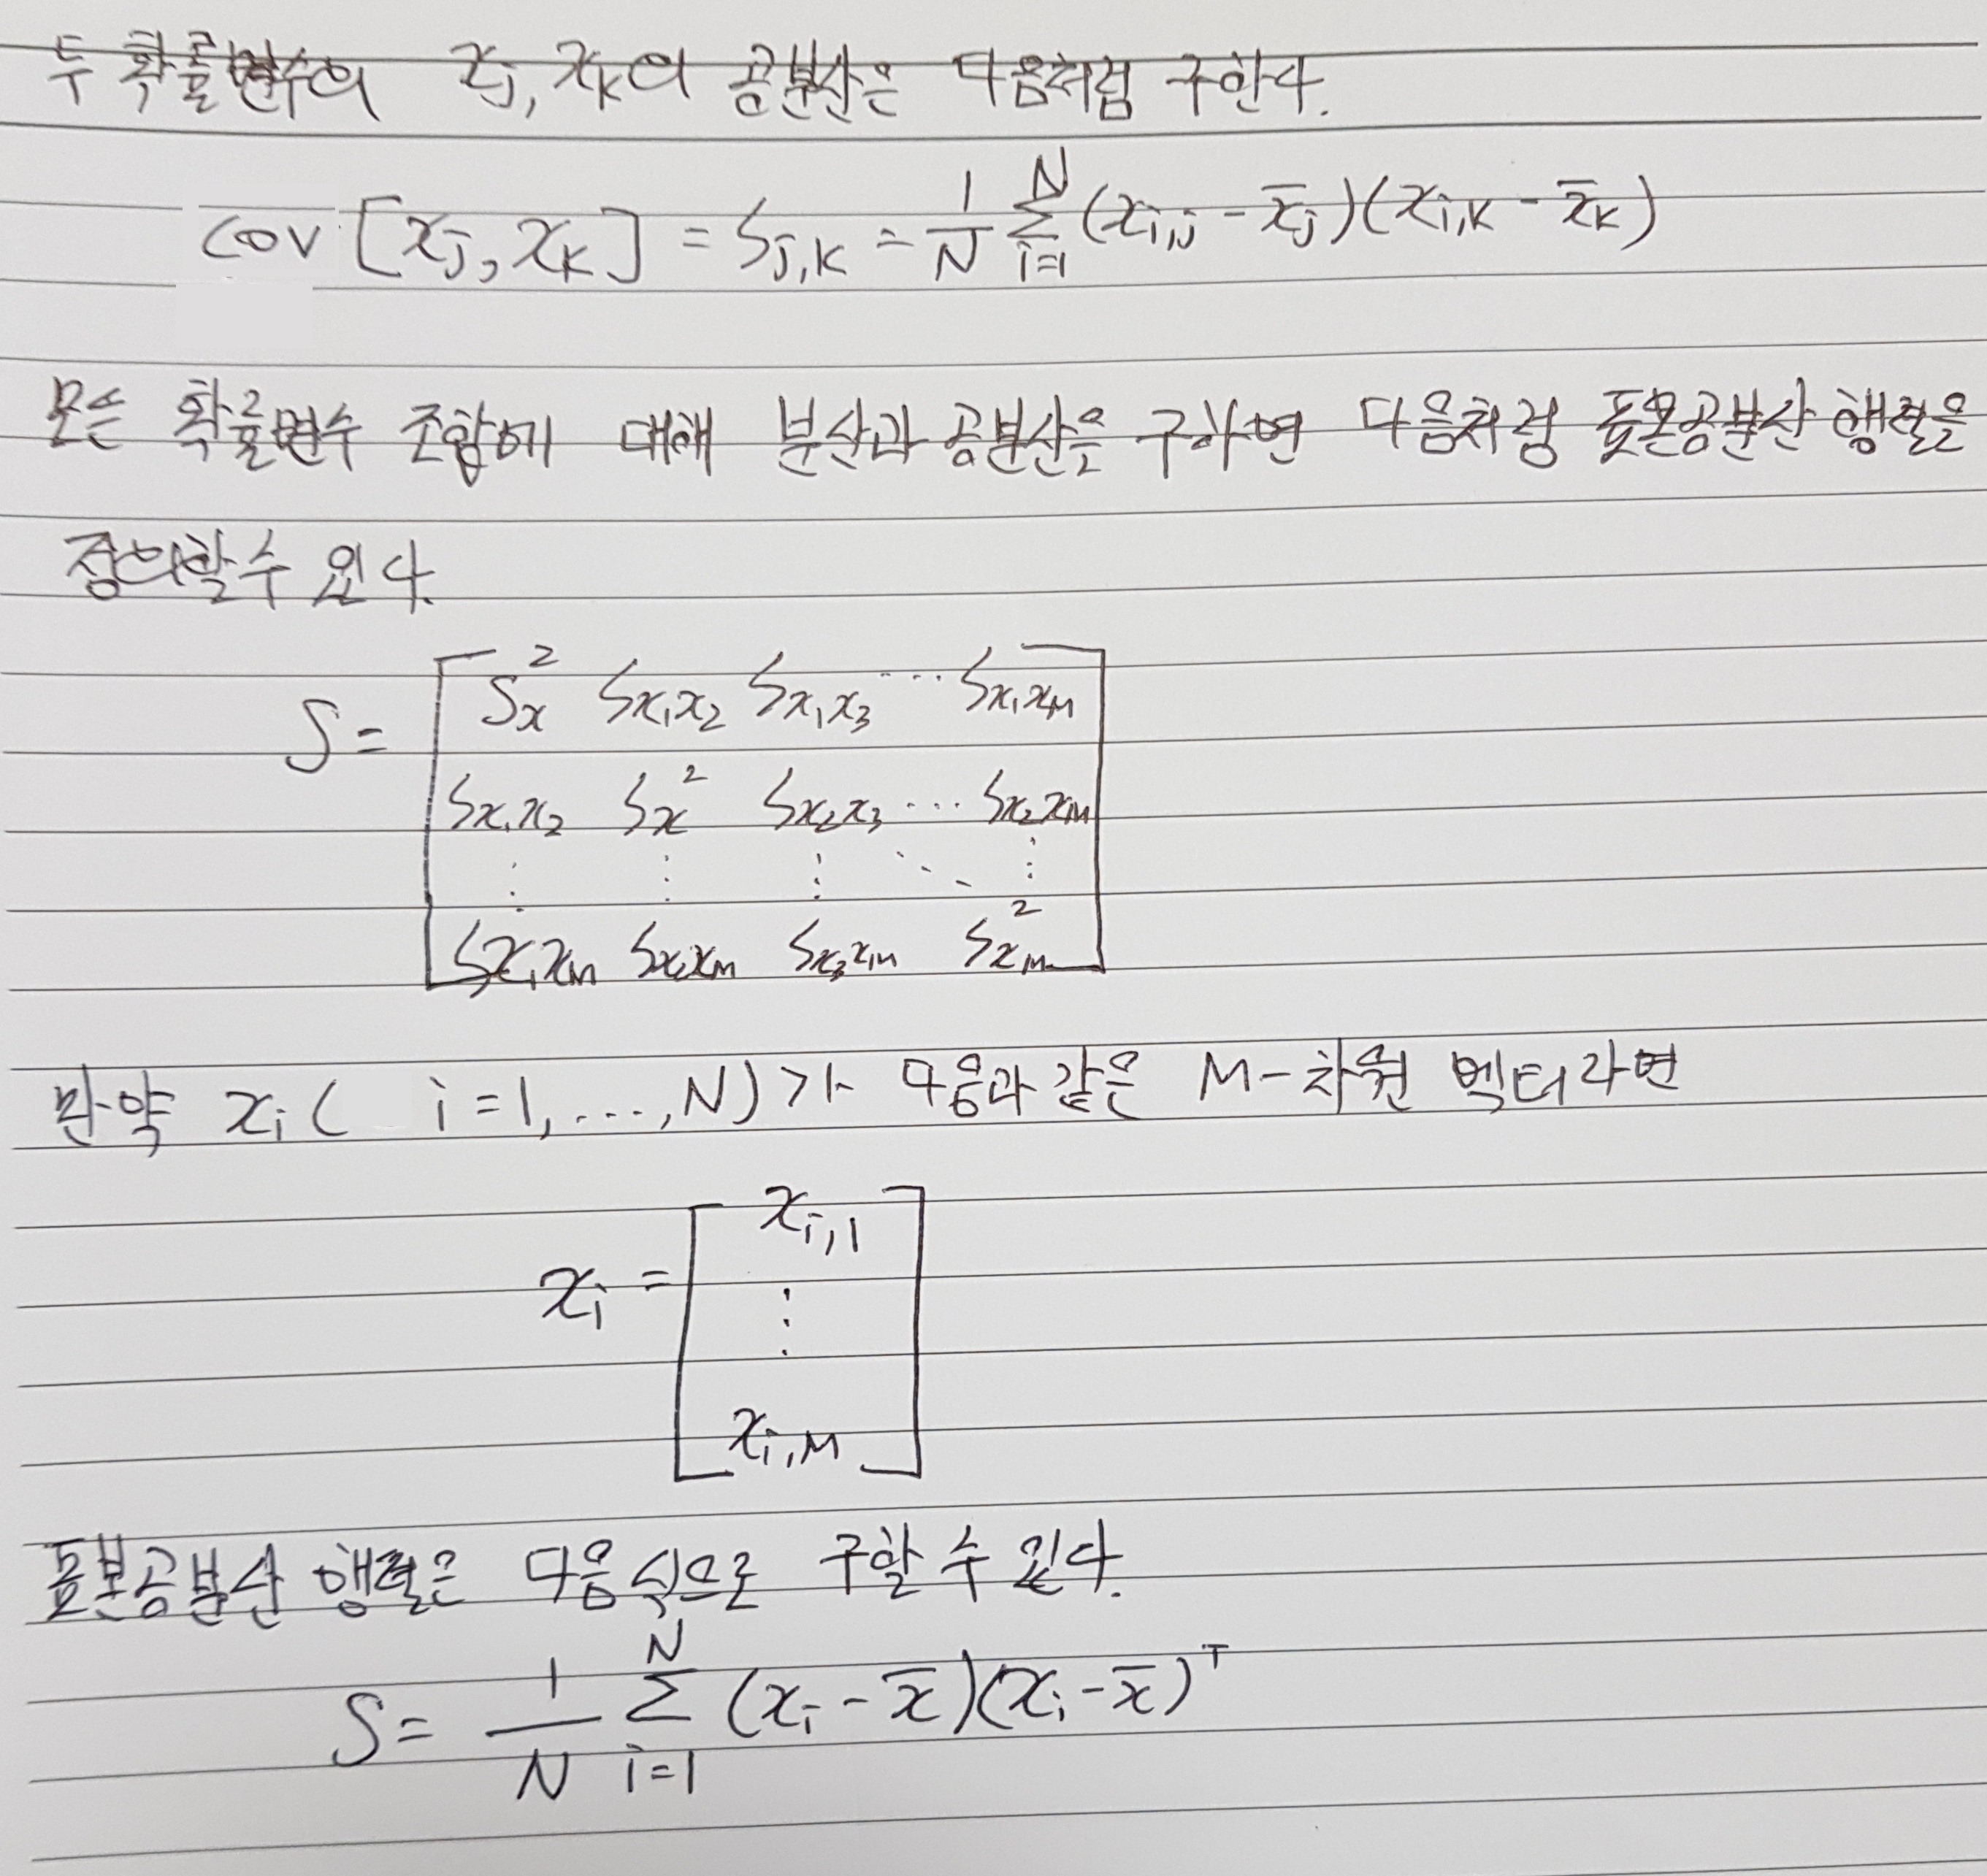 두 확률변수의 xⱼ, xₖ의 공분산은 다음처럼 구한다.
cov [xⱼ, xₖ] = S_{j,k} = \frac{1}{N} \sum_{i=1}^{N} (x_{i,j} - \bar{x}_j)(x_{i,k} - \bar{x}_k)
모든 확률변수 조합에 대해 분산과 공분산을 구하면 다음처럼 표본공분산 행렬을
정의할수 있다.
S = \begin{bmatrix} S_x^2 & S_{x_1x_2} & S_{x_1x_3} & \cdots & S_{x_1x_M} \\ S_{x_1x_2} & S_x^2 & S_{x_2x_3} & \cdots & S_{x_2x_M} \\ \vdots & \vdots & \vdots & \ddots & \vdots \\ S_{x_1x_M} & S_{x_2x_M} & S_{x_3x_M} & & S_{x_M}^2 \end{bmatrix}
만약 x_i ( i=1, ..., N)가 다음과 같은 M-차원 벡터라면
x_i = \begin{bmatrix} x_{i,1} \\ \vdots \\ x_{i,M} \end{bmatrix}
표본공분산 행렬은 다음 식으로 구할 수 있다.
S = \frac{1}{N} \sum_{i=1}^{N} (x_i - \bar{x})(x_i - \bar{x})^T